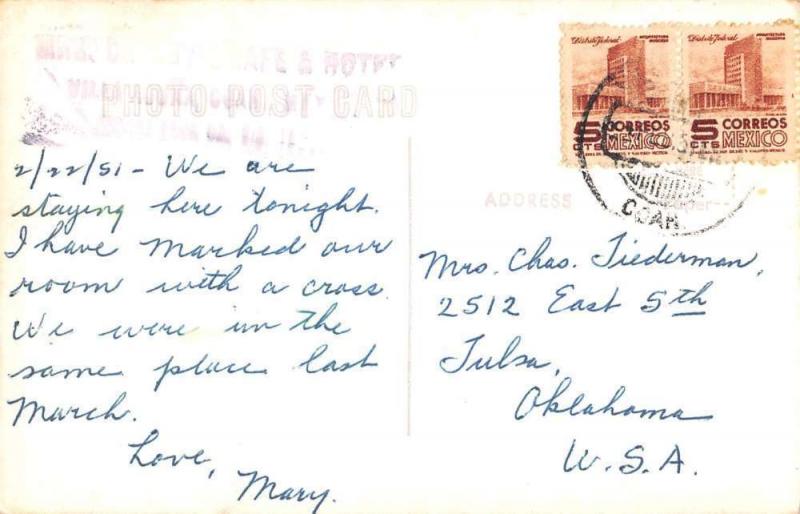 PHOTO POST CARD
2/22/51 - We are
staying here tonight.
I have marked our
room with a cross.
We were in the
same place last
March.
Love,
Mary.
Distrito Federal ARQUITECTURA MODERNA
5 CTS CORREOS MEXICO
Distrito Federal ARQUITECTURA MODERNA
5 CTS CORREOS MEXICO
COAH.
ADDRESS
Mrs. Chas. Tiederman,
2512 East 5th
Tulsa,
Oklahoma
U.S.A.